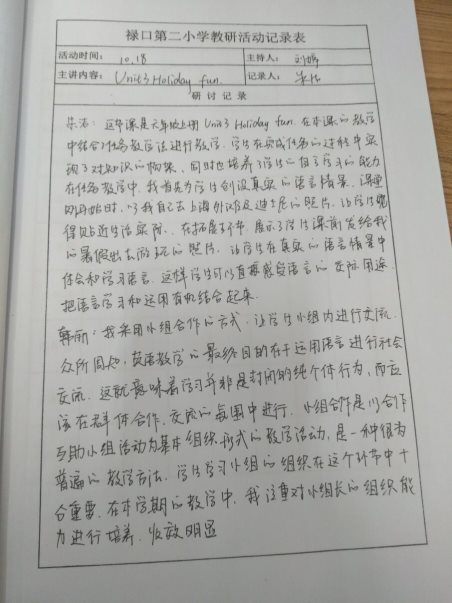 禄口第二小学教研活动记录表
活动时间： 10.18 主持人：
主讲内容： Unit3 Holiday fun. 记录人：
研讨记录
这节课是六年级上册 Unit3 Holiday fun. 在本课的教学
中结合了任务教学法进行教学。学生在完成任务的过程中实
现了对知识的构架，同时也培养了学生的自主学习的能力
在任务教学中，我首先为学生创设真实的语言情景，课堂
刚开始时，以我自己去上海外滩及迪士尼的照片，让学生觉
得贴近生活实际。在拓展环节，展示了学生课前发给我
的暑假出去游玩的照片，让学生在真实的语言情景中
体会和学习语言。这样学生可以直接感受语言的交际用途，
把语言学习和运用有机结合起来.
韩丽：我采用小组合作的方式，让学生小组内进行交流.
众所周知，英语教学的最终目的在于运用语言进行社会
交流。这就意味着学习并非是封闭的纯个体行为，而应
该在群体合作、交流的氛围中进行. 小组合作是以合作
互助小组活动为基本组织形式的教学活动，是一种很为
普遍的教学方法. 学生学习小组的组织在这个环节中十
分重要. 在本学期的教学中，我注重对小组长的组织能
力进行培养. 收效明显